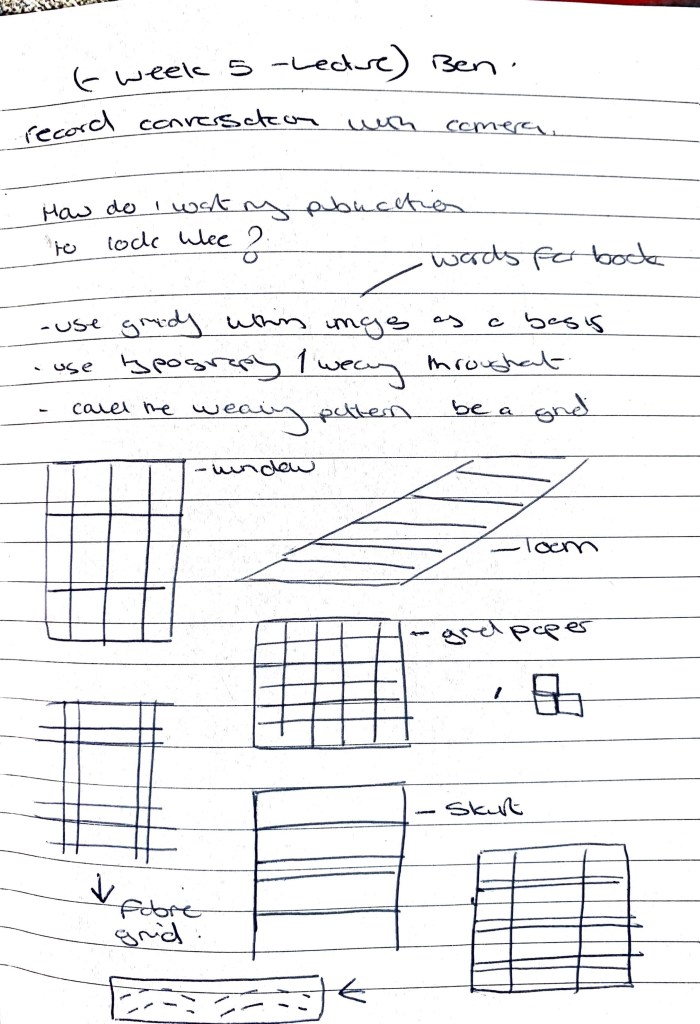 (- Week 5 - Lecture) Ben.
record conversation with camera.
How do I want my publication
to look like?
words for book
- use grids within images as a basis
- use typography / weaving throughout.
- could the weaving pattern be a grid
- window
- loom
- grid paper
- Skirt
Fabric
grid.